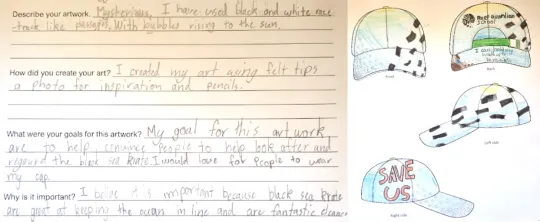 Describe your artwork. Mysterious, I have used black and white race
-track like passages, With bubbles rising to the sun.
How did you create your art? I created my art using felt tips
a photo for inspiration and pencils.
What were your goals for this artwork? My goal for this art work
are to help, convince people to help look after and
the black sea krate. I would love for people to wear
my cap.
Why is it important? I belive it is important because black sea krate
are great at keeping the ocean in line and are fantastic cleaners
Reef Guardian
School
Front
Back
Left side
SAVE
US
Right side